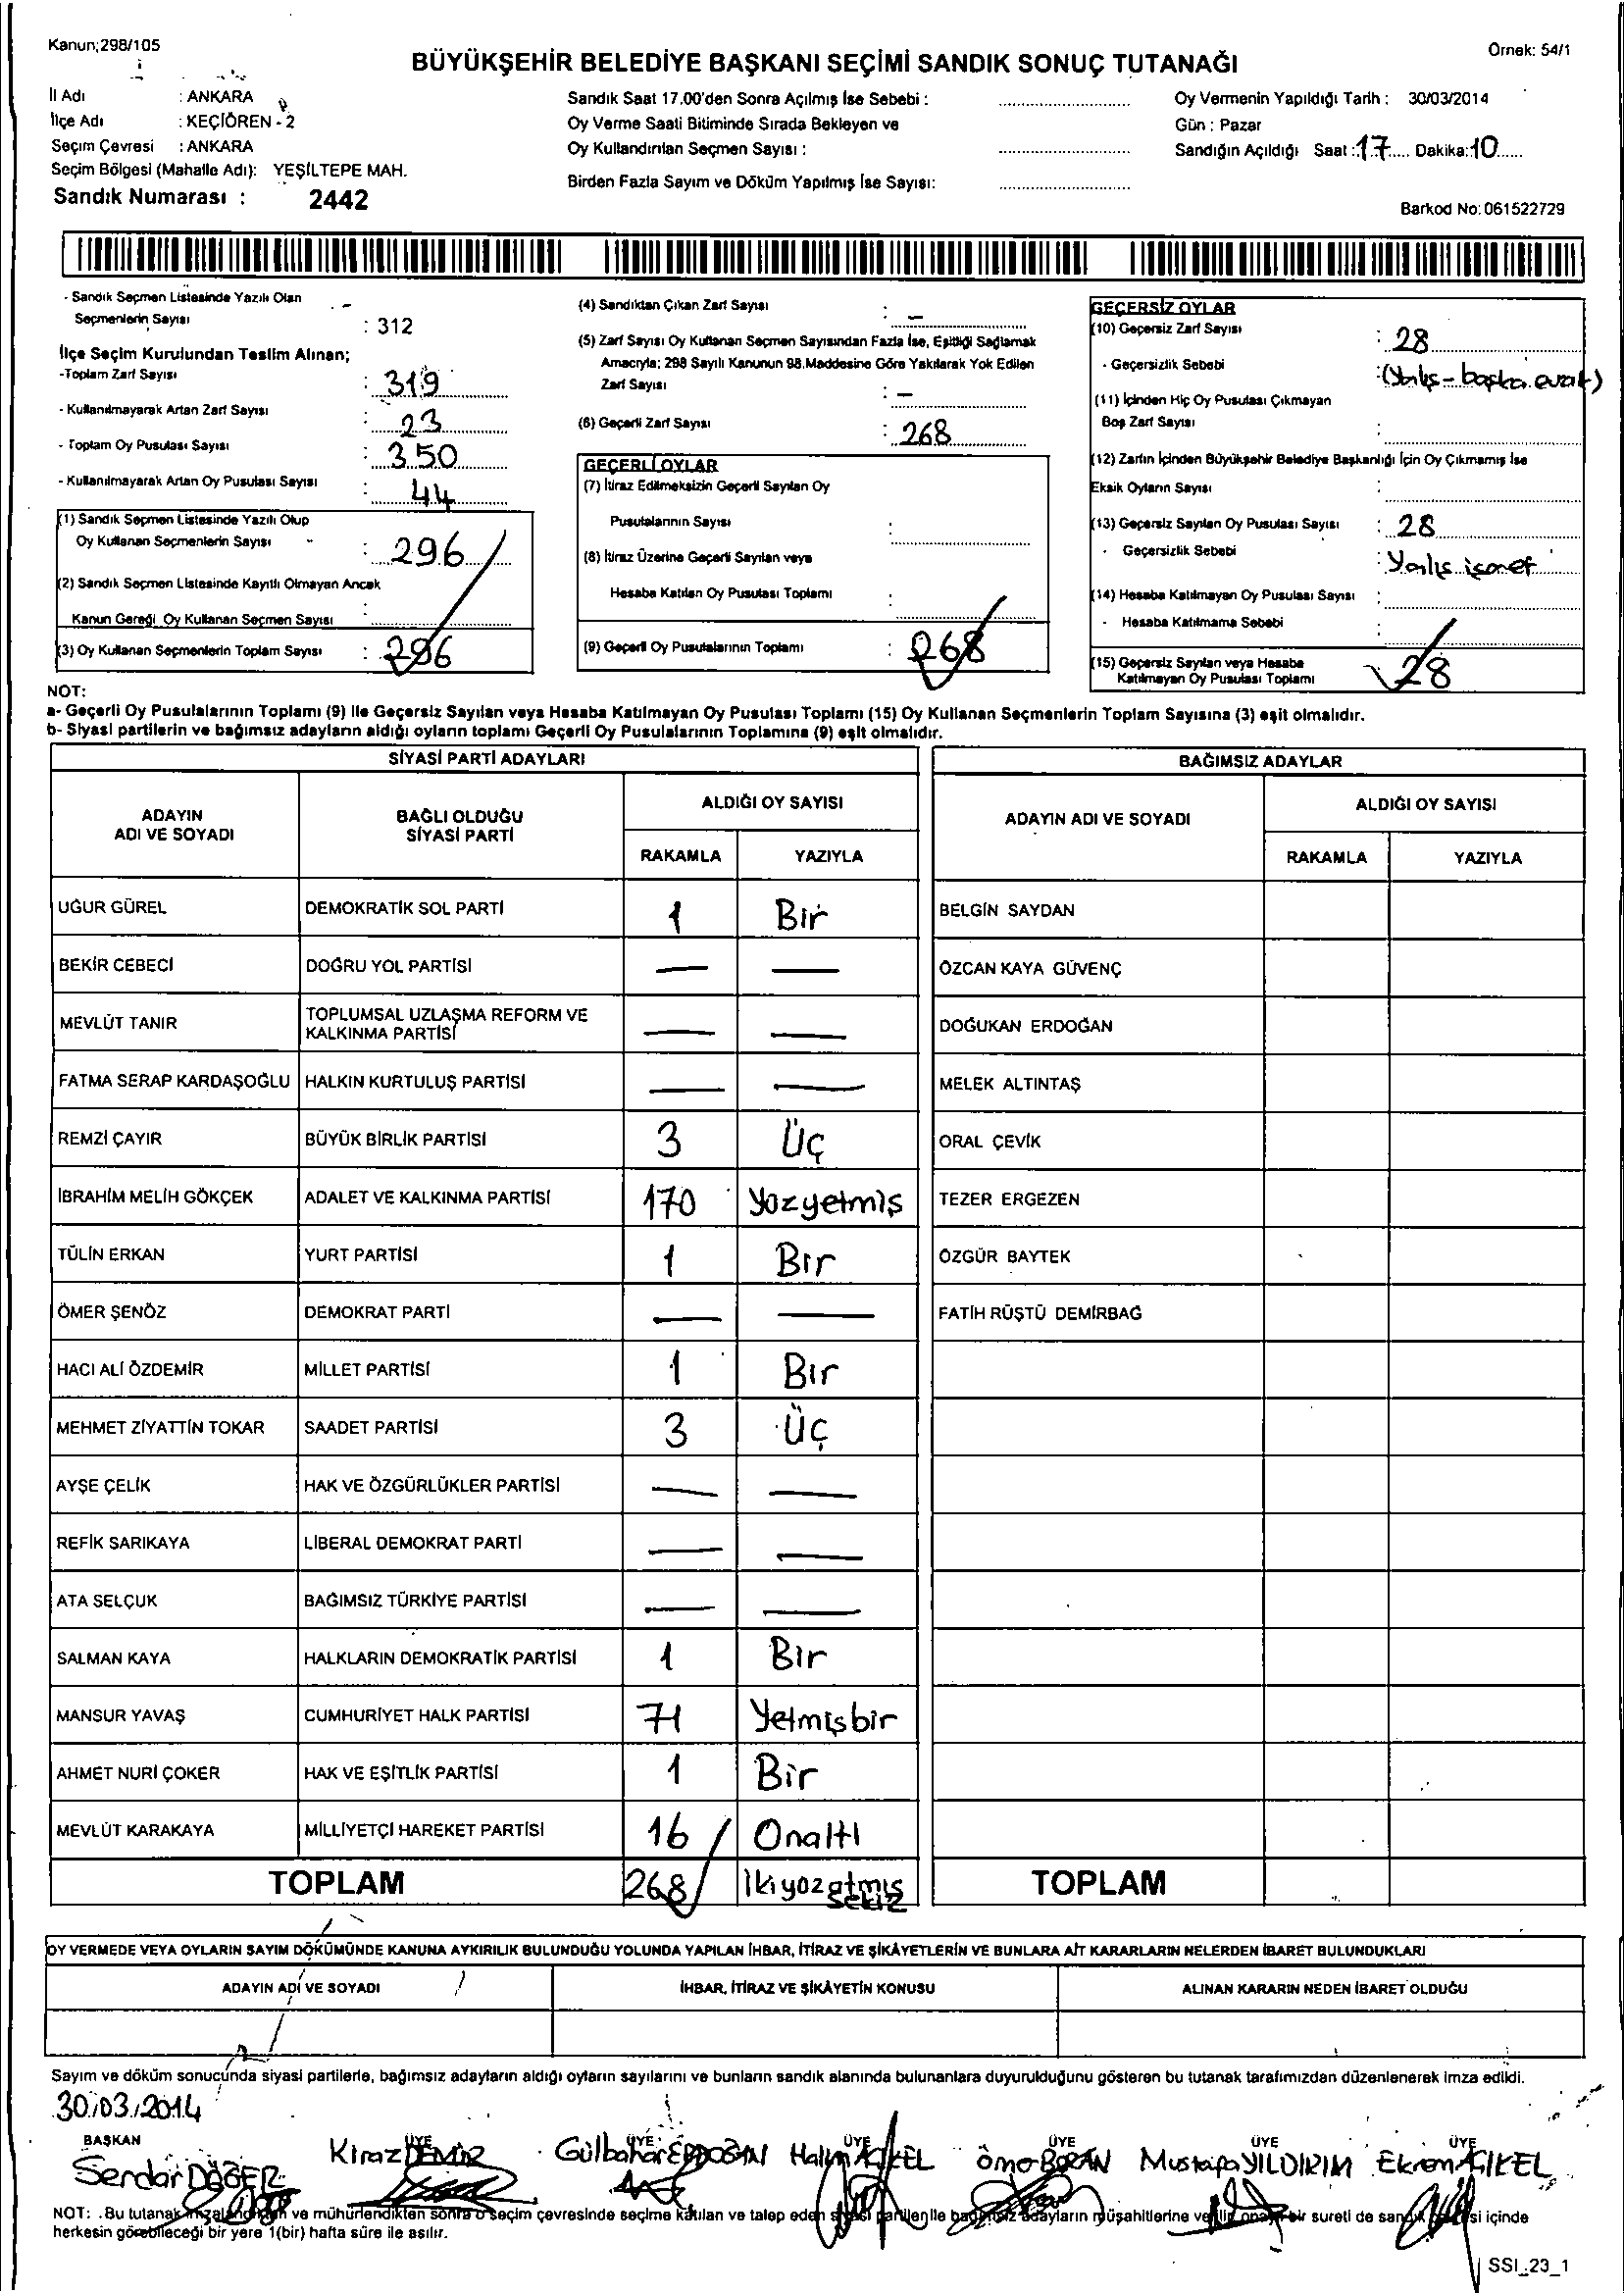 Kanun;298/105
Örnek: 54/1
BÜYÜKŞEHİR BELEDİYE BAŞKANI SEÇİMİ SANDIK SONUÇ TUTANAĞI
İl Adı : ANKARA
İlçe Adı : KEÇİÖREN - 2
Seçim Çevresi : ANKARA
Seçim Bölgesi (Mahalle Adı): YEŞİLTEPE MAH.
Sandık Numarası : 2442
Sandık Saat 17.00'den Sonra Açılmış İse Sebebi :
Oy Verme Saati Bitiminde Sırada Bekleyen ve
Oy Kullandırılan Seçmen Sayısı :
Birden Fazla Sayım ve Döküm Yapılmış İse Sayısı:
Oy Vermenin Yapıldığı Tarih : 30/03/2014
Gün : Pazar
Sandığın Açıldığı Saat : 17 Dakika: 10
Barkod No: 061522729
- Sandık Seçmen Listesinde Yazılı Olan
Seçmenlerin Sayısı : 312
İlçe Seçim Kurulundan Teslim Alınan;
-Toplam Zarf Sayısı : 319
- Kullanılmayarak Artan Zarf Sayısı : 23
- Toplam Oy Pusulası Sayısı : 350
- Kullanılmayarak Artan Oy Pusulası Sayısı : 44
(1) Sandık Seçmen Listesinde Yazılı Olup
Oy Kullanan Seçmenlerin Sayısı : 296
(2) Sandık Seçmen Listesinde Kayıtlı Olmayan Ancak
Kanun Gereği Oy Kullanan Seçmen Sayısı :
(3) Oy Kullanan Seçmenlerin Toplam Sayısı : 296
(4) Sandıktan Çıkan Zarf Sayısı : -
(5) Zarf Sayısı Oy Kullanan Seçmen Sayısından Fazla İse, Eşitliği Sağlamak
Amacıyla; 298 Sayılı Kanunun 98.Maddesine Göre Yakılarak Yok Edilen
Zarf Sayısı : -
(6) Geçerli Zarf Sayısı : 268
GEÇERLİ OYLAR
(7) İtiraz Edilmeksizin Geçerli Sayılan Oy
Pusulalarının Sayısı :
(8) İtiraz Üzerine Geçerli Sayılan veya
Hesaba Katılan Oy Pusulası Toplamı :
(9) Geçerli Oy Pusulalarının Toplamı : 268
GEÇERSİZ OYLAR
(10) Geçersiz Zarf Sayısı : 28
- Geçersizlik Sebebi : (Yanlış - başka evrak)
(11) İçinden Hiç Oy Pusulası Çıkmayan
Boş Zarf Sayısı :
(12) Zarfın İçinden Büyükşehir Belediye Başkanlığı İçin Oy Çıkmamış İse
Eksik Oyların Sayısı :
(13) Geçersiz Sayılan Oy Pusulası Sayısı : 28
- Geçersizlik Sebebi : Yanlış işaret
(14) Hesaba Katılmayan Oy Pusulası Sayısı :
- Hesaba Katılmama Sebebi :
(15) Geçersiz Sayılan veya Hesaba
Katılmayan Oy Pusulası Toplamı 28
NOT:
a- Geçerli Oy Pusulalarının Toplamı (9) ile Geçersiz Sayılan veya Hesaba Katılmayan Oy Pusulası Toplamı (15) Oy Kullanan Seçmenlerin Toplam Sayısına (3) eşit olmalıdır.
b- Siyasi partilerin ve bağımsız adayların aldığı oyların toplamı Geçerli Oy Pusulalarının Toplamına (9) eşit olmalıdır.
SİYASİ PARTİ ADAYLARI
ADAYIN ADI VE SOYADI BAĞLI OLDUĞU SİYASİ PARTİ ALDIĞI OY SAYISI
RAKAMLA YAZIYLA
UĞUR GÜREL DEMOKRATİK SOL PARTİ 1 Bir
BEKİR CEBECİ DOĞRU YOL PARTİSİ — —
MEVLÜT TANIR TOPLUMSAL UZLAŞMA REFORM VE KALKINMA PARTİSİ — —
FATMA SERAP KARDAŞOĞLU HALKIN KURTULUŞ PARTİSİ — —
REMZİ ÇAYIR BÜYÜK BİRLİK PARTİSİ 3 Üç
İBRAHİM MELİH GÖKÇEK ADALET VE KALKINMA PARTİSİ 170 Yüzyetmiş
TÜLİN ERKAN YURT PARTİSİ 1 Bir
ÖMER ŞENÖZ DEMOKRAT PARTİ — —
HACI ALİ ÖZDEMİR MİLLET PARTİSİ 1 Bir
MEHMET ZİYATTİN TOKAR SAADET PARTİSİ 3 Üç
AYŞE ÇELİK HAK VE ÖZGÜRLÜKLER PARTİSİ — —
REFİK SARIKAYA LİBERAL DEMOKRAT PARTİ — —
ATA SELÇUK BAĞIMSIZ TÜRKİYE PARTİSİ — —
SALMAN KAYA HALKLARIN DEMOKRATİK PARTİSİ 1 Bir
MANSUR YAVAŞ CUMHURİYET HALK PARTİSİ 71 Yetmişbir
AHMET NURİ ÇOKER HAK VE EŞİTLİK PARTİSİ 1 Bir
MEVLÜT KARAKAYA MİLLİYETÇİ HAREKET PARTİSİ 16 Onaltı
TOPLAM 268 İkiyüzatmış sekiz
BAĞIMSIZ ADAYLAR
ADAYIN ADI VE SOYADI ALDIĞI OY SAYISI
RAKAMLA YAZIYLA
BELGİN SAYDAN
ÖZCAN KAYA GÜVENÇ
DOĞUKAN ERDOĞAN
MELEK ALTINTAŞ
ORAL ÇEVİK
TEZER ERGEZEN
ÖZGÜR BAYTEK
FATİH RÜŞTÜ DEMİRBAĞ
TOPLAM
OY VERMEDE VEYA OYLARIN SAYIM DÖKÜMÜNDE KANUNA AYKIRILIK BULUNDUĞU YOLUNDA YAPILAN İHBAR, İTİRAZ VE ŞİKÂYETLERİN VE BUNLARA AİT KARARLARIN NELERDEN İBARET BULUNDUKLARI
ADAYIN ADI VE SOYADI İHBAR, İTİRAZ VE ŞİKÂYETİN KONUSU ALINAN KARARIN NEDEN İBARET OLDUĞU
Sayım ve döküm sonucunda siyasi partilerle, bağımsız adayların aldığı oyların sayılarını ve bunların sandık alanında bulunanlara duyurulduğunu gösteren bu tutanak tarafımızdan düzenlenerek imza edildi.
30/03/2014
BAŞKAN ÜYE ÜYE ÜYE ÜYE ÜYE ÜYE
Serdar DÖĞER Kiraz DEMİR Gülbahar ERDOĞAN Halim AÇIKEL Ömer BORAN Mustafa YILDIRIM Ekrem AÇIKEL
NOT: .Bu tutanak imzalandıktan ve mühürlendikten sonra o seçim çevresinde seçime katılan ve talep eden siyasi partiler ile bağımsız adayların müşahitlerine verilir onaylı bir sureti de sandık çevresi içinde
herkesin görebileceği bir yere 1(bir) hafta süre ile asılır.
SSI_23_1